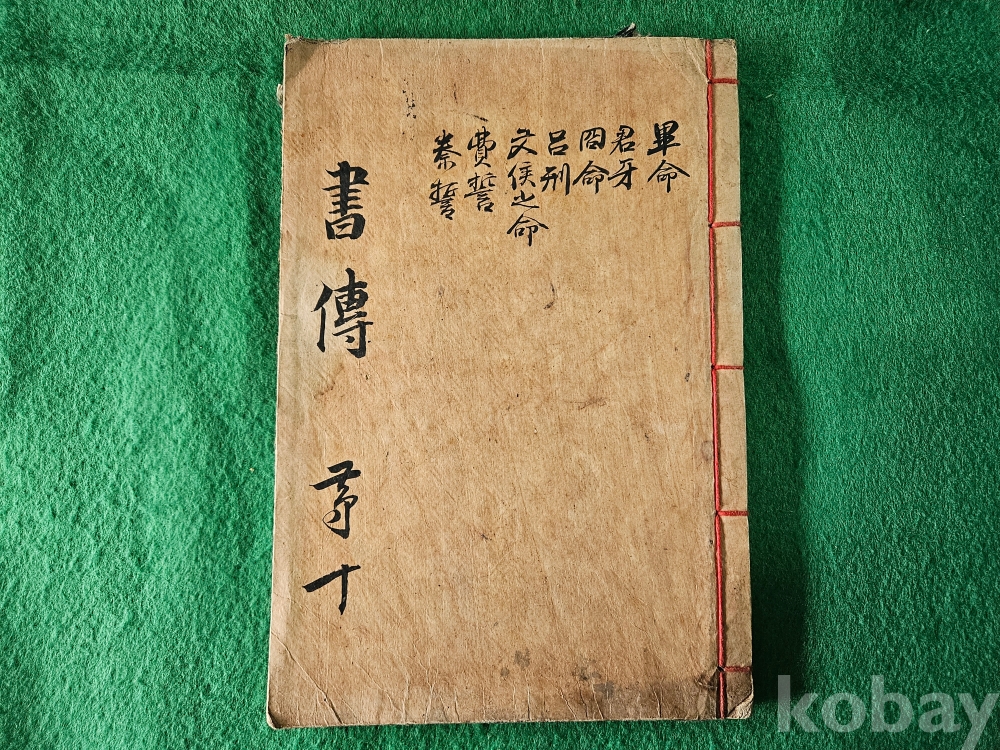 書傳 苐十
畢命
君牙
冏命
呂刑
文侯之命
費誓
秦誓
kobay